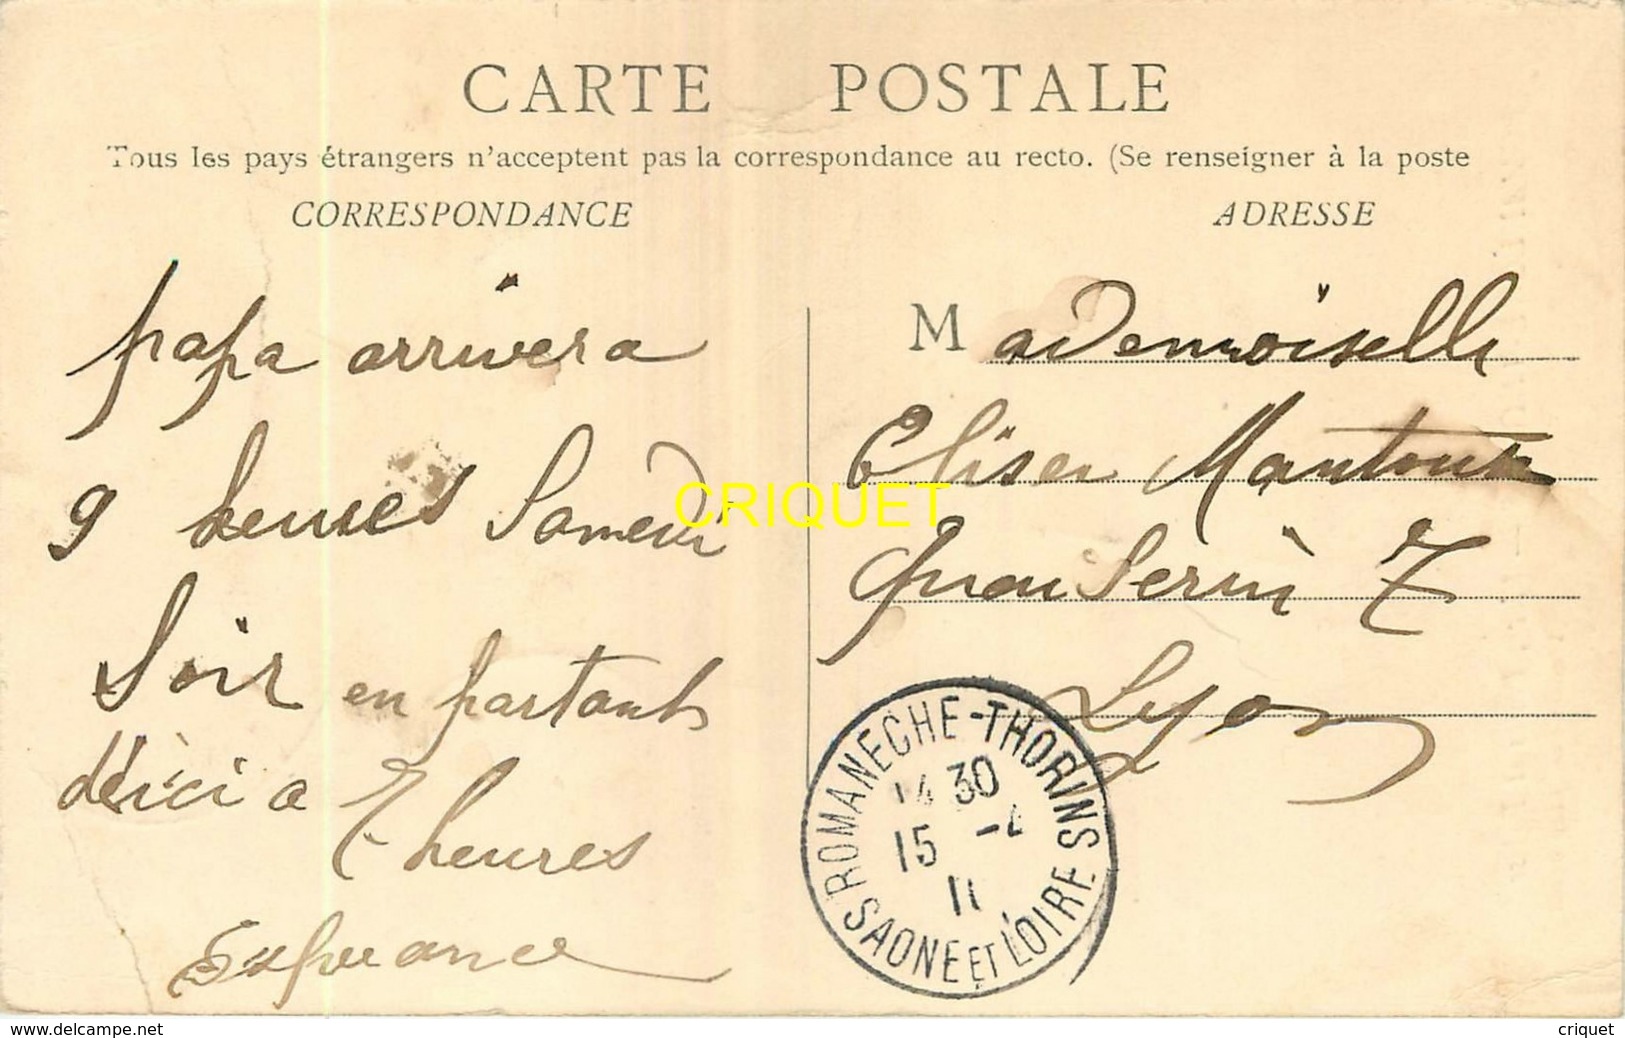 CARTE POSTALE
Tous les pays étrangers n'acceptent pas la correspondance au recto. (Se renseigner à la poste
CORRESPONDANCE
ADRESSE
papa arrivera
9 heures Samedi
Soir en partant
d'ici a 7 heures
Mademoiselle
Mantoux
Quai Serin 7
Lyon
ROMANECHE-THORINS
14 30
15 -4
11
SAONE ET LOIRE
CRIQUET
www.delcampe.net
criquet